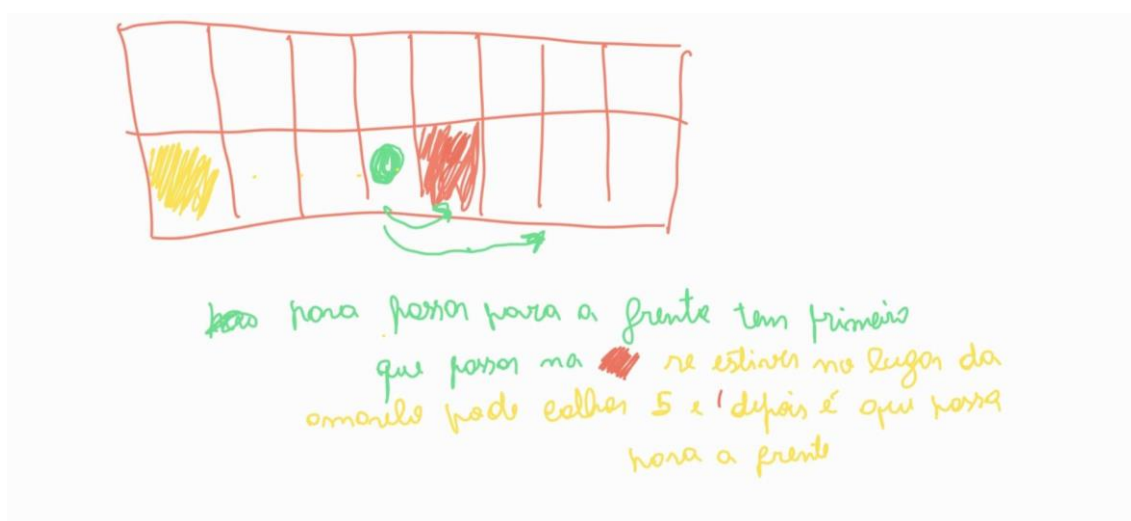 para passar para a frente tem primeiro
que passar na se estiver no lugar da
amarelo pode calhar 5 e depois é que passa
para a frente